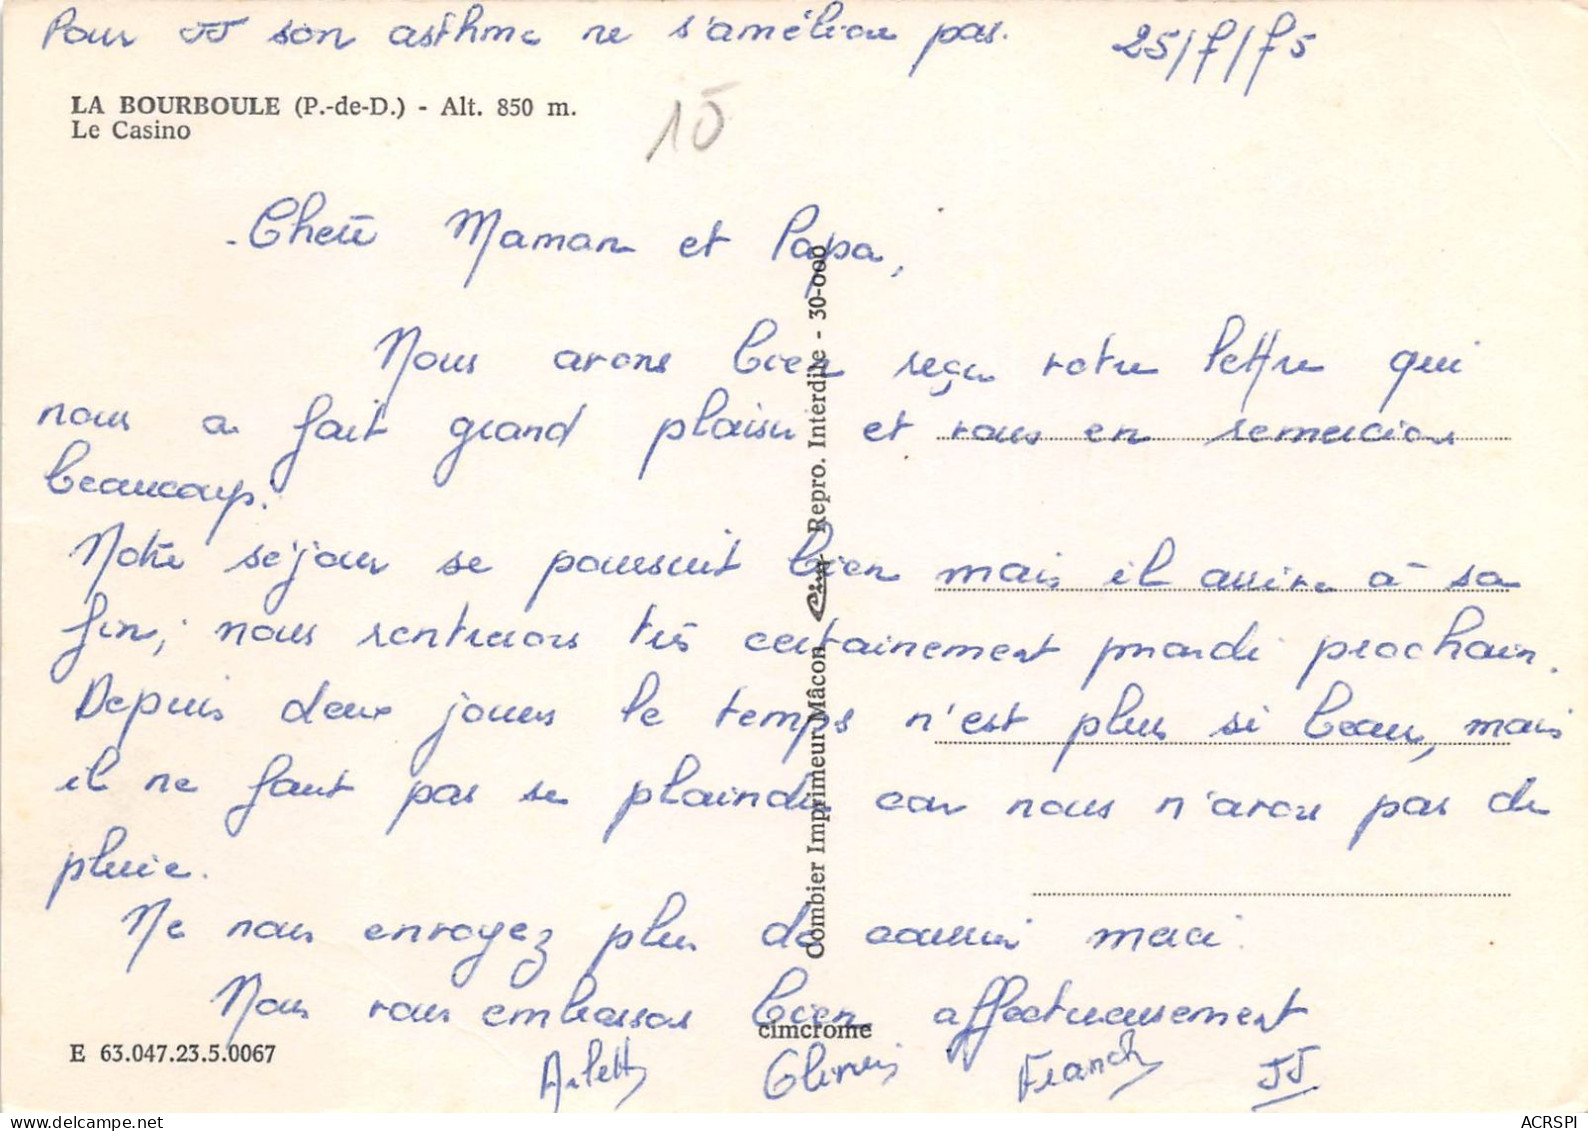 Pour JJ son asthme ne s'améliore pas. 25/7/75
LA BOURBOULE (P.-de-D.) - Alt. 850 m.
Le Casino
15
- Chère Maman et Papa,
Nous avons bien reçu votre lettre qui
nous a fait grand plaisir et vous en remercions
beaucoup.
Notre séjour se poursuit bien mais il arrive à sa
fin, nous rentrerons très certainement mardi prochain.
Depuis deux jours le temps n'est plus si beau, mais
il ne faut pas se plaindre car nous n'avons pas de
pluie.
Ne nous envoyez plus de courrier merci.
Nous vous embrassons bien affectueusement
Arlette Franck JJ
Combier Imprimeur Mâcon Cim Repro. Interdite - 30-000
cimcrome
E 63.047.23.5.0067
ACRSPI